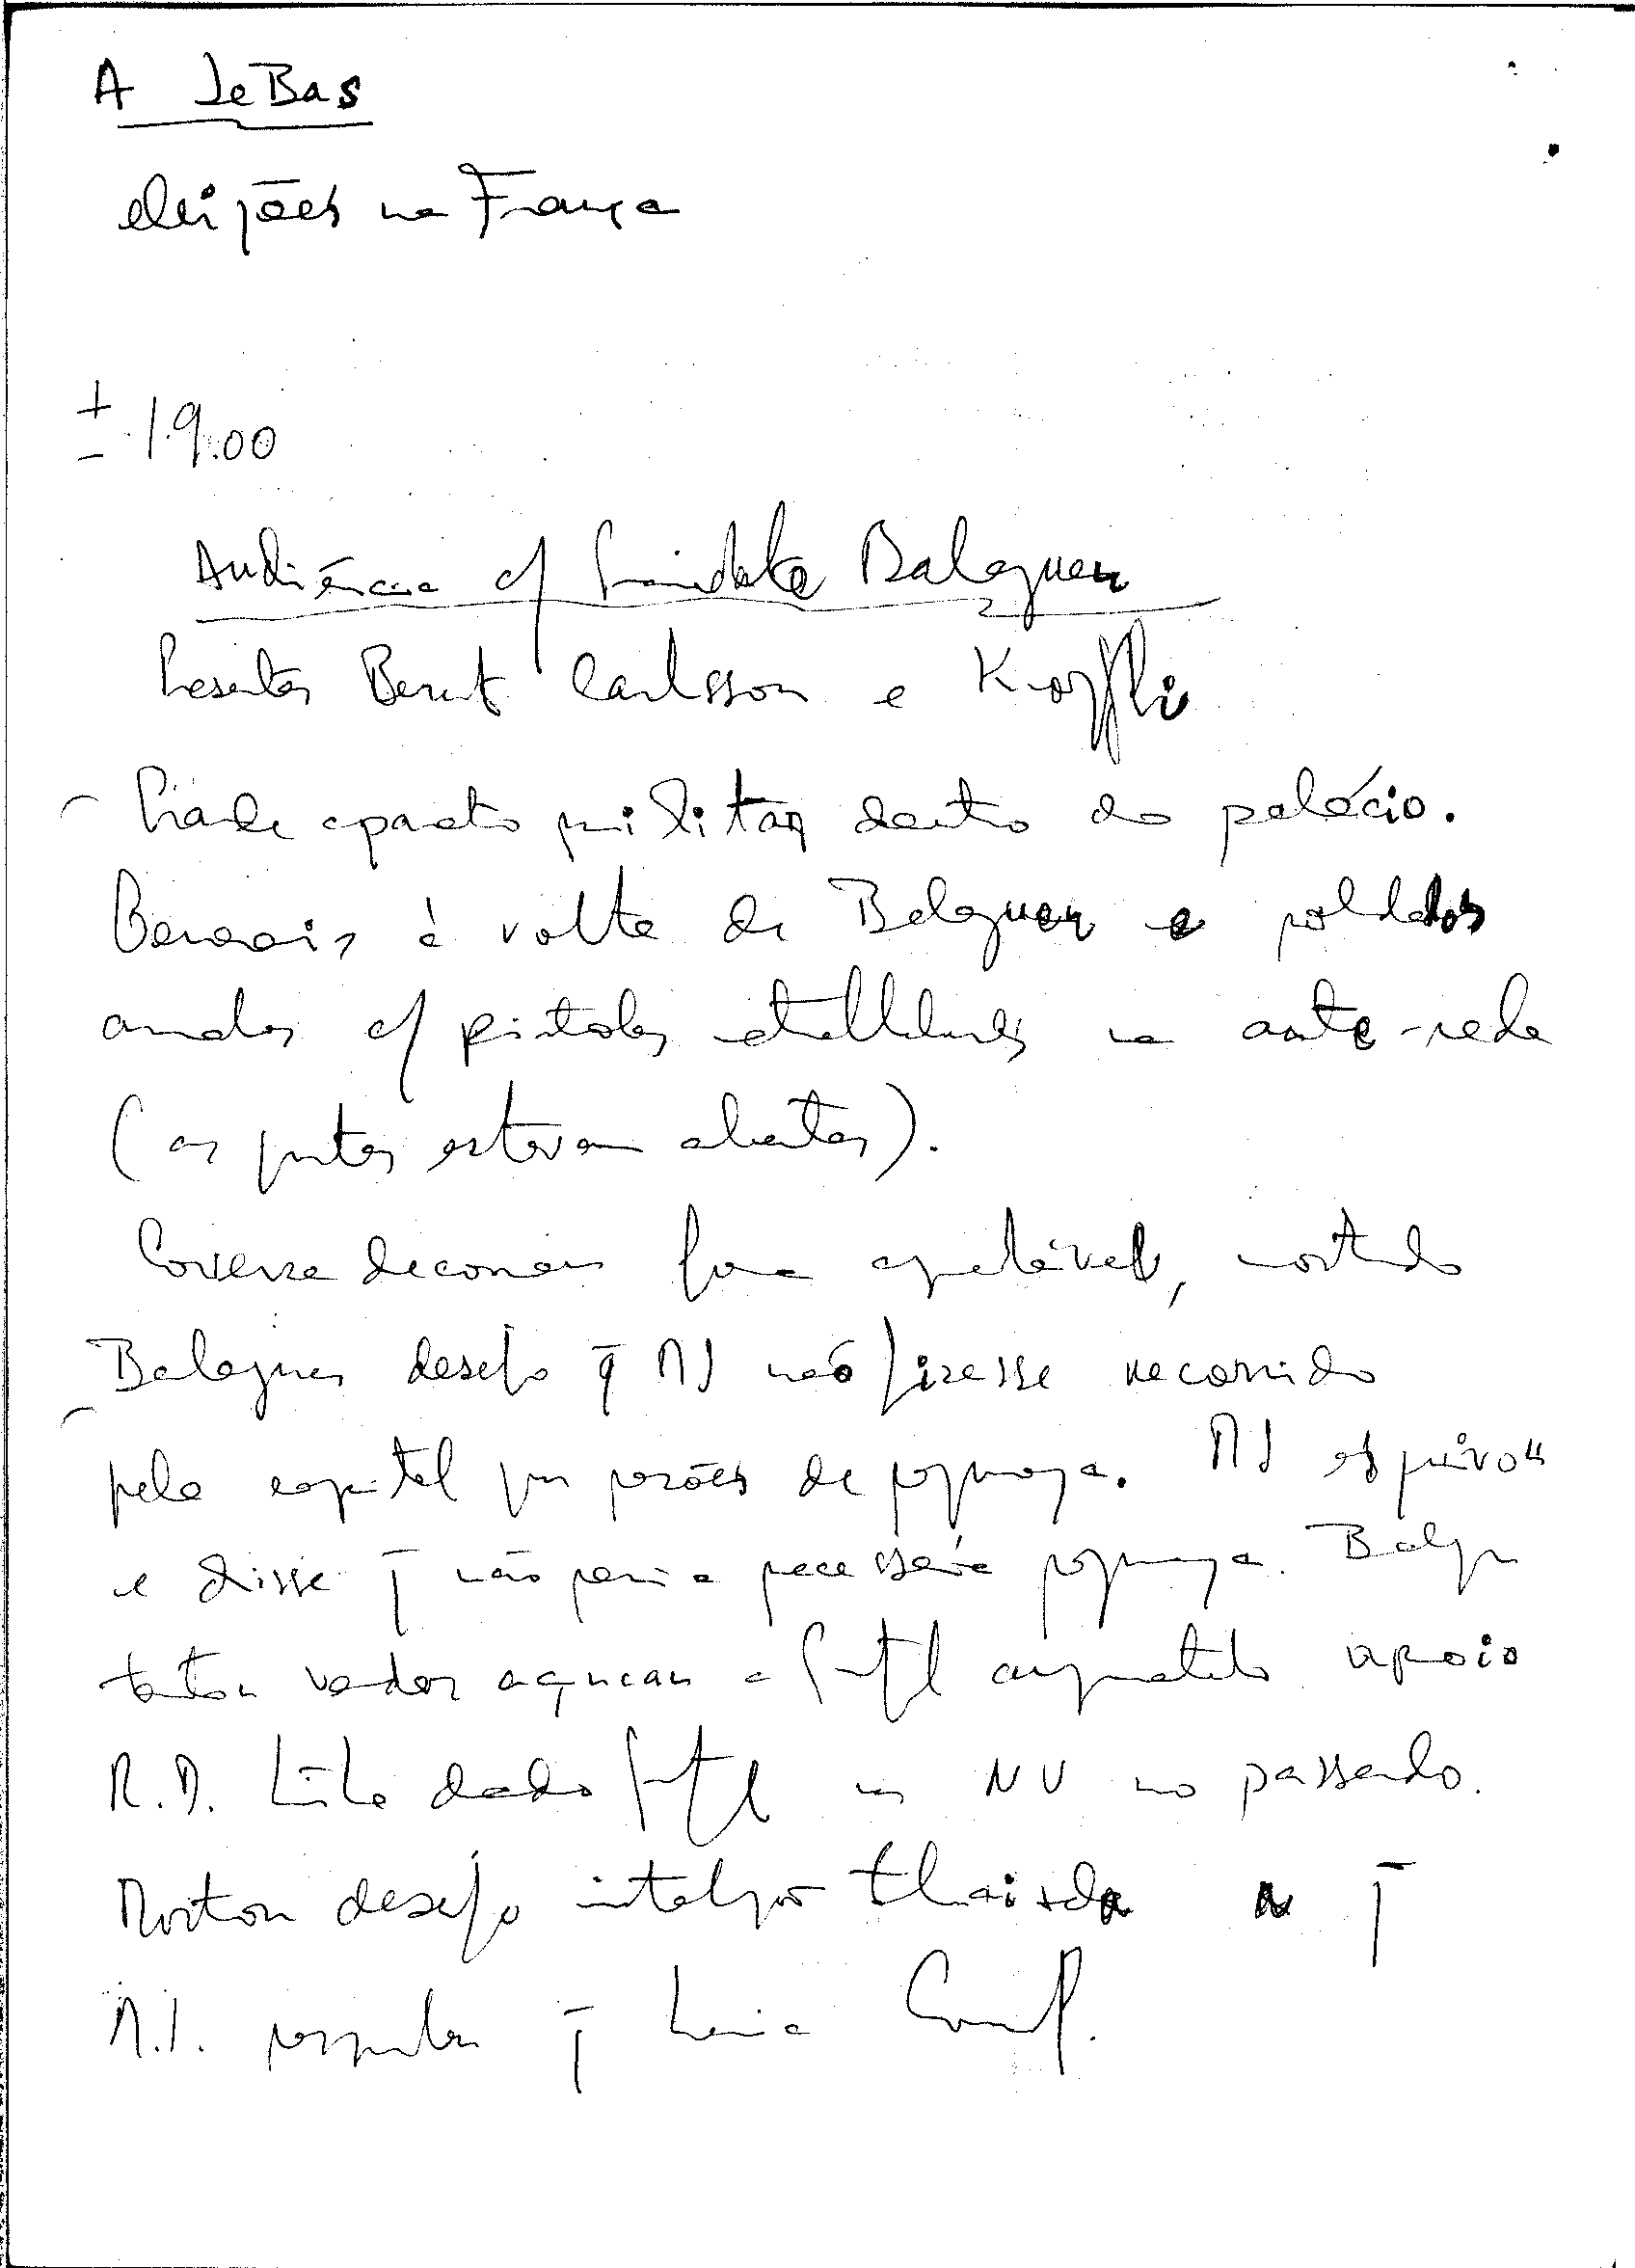 A Le Bas
eleições na França
± 19.00
Audiência c/ Presidente Balaguer
Presentes Bernt Carlsson e
Grande aparato militar dentro do palácio.
Generais à volta de Balaguer e soldados
armados c/ pistolas metralhadoras na ante-sala
(as portas estavam abertas).
Conversa decorreu forma agradável, mostrando
Balaguer desejo q̄ MS não fizesse recorrido
pela capital por razões de segurança. MS esquivou
e disse q̄ não seria necessária segurança. Balaguer
tentou vender açucar a Portugal apoio
R.D. tinha dado Portugal nas NU no passado.
Mostrou desejo
M.S. q̄ havia